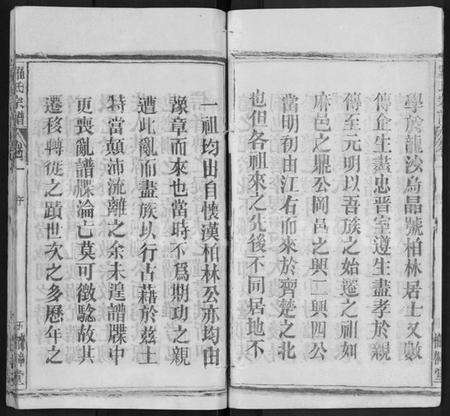 學於龍洟烏晶號柏林居士又數
傳企生盡忠晋室遵生盡孝於親
傳至元明以吾族之始遷之祖如
麻邑之鼎公岡邑之興一興四公
當明初由江右而來於齊楚之北
也但各祖來之先後不同居地不
一祖均由自懷漢柏林公亦均由
豫章而來也當時不爲期功之親
遭此亂而盡族以行占藉於茲土
特當顛沛流離之余未遑譜牒中
更喪亂譜牒淪亡莫可徵驗故其
遷移轉徙之蹟世次之多歷年之
羅氏宗譜
卷一
序